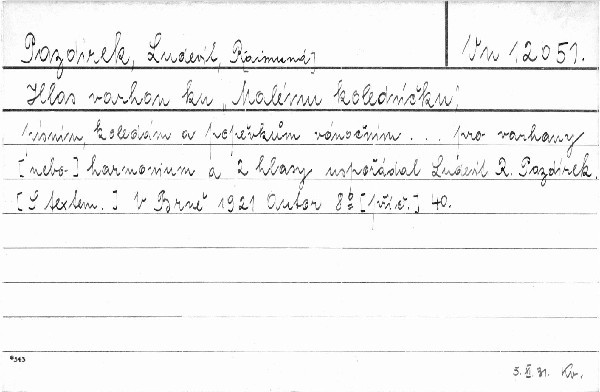 Pazdírek, Ludevít, R[aimund] Vn 12051.
Hlas varhan ku „Malému koledníčku“,
písním, koledám a popěvkům vánočním ... pro varhany
[nebo] harmonium a 2 hlasy uspořádal Ludevít R. Pazdírek.
[S textem.] V Brně 1921 Autor 8° 40.
5. XI. 31. Kv.